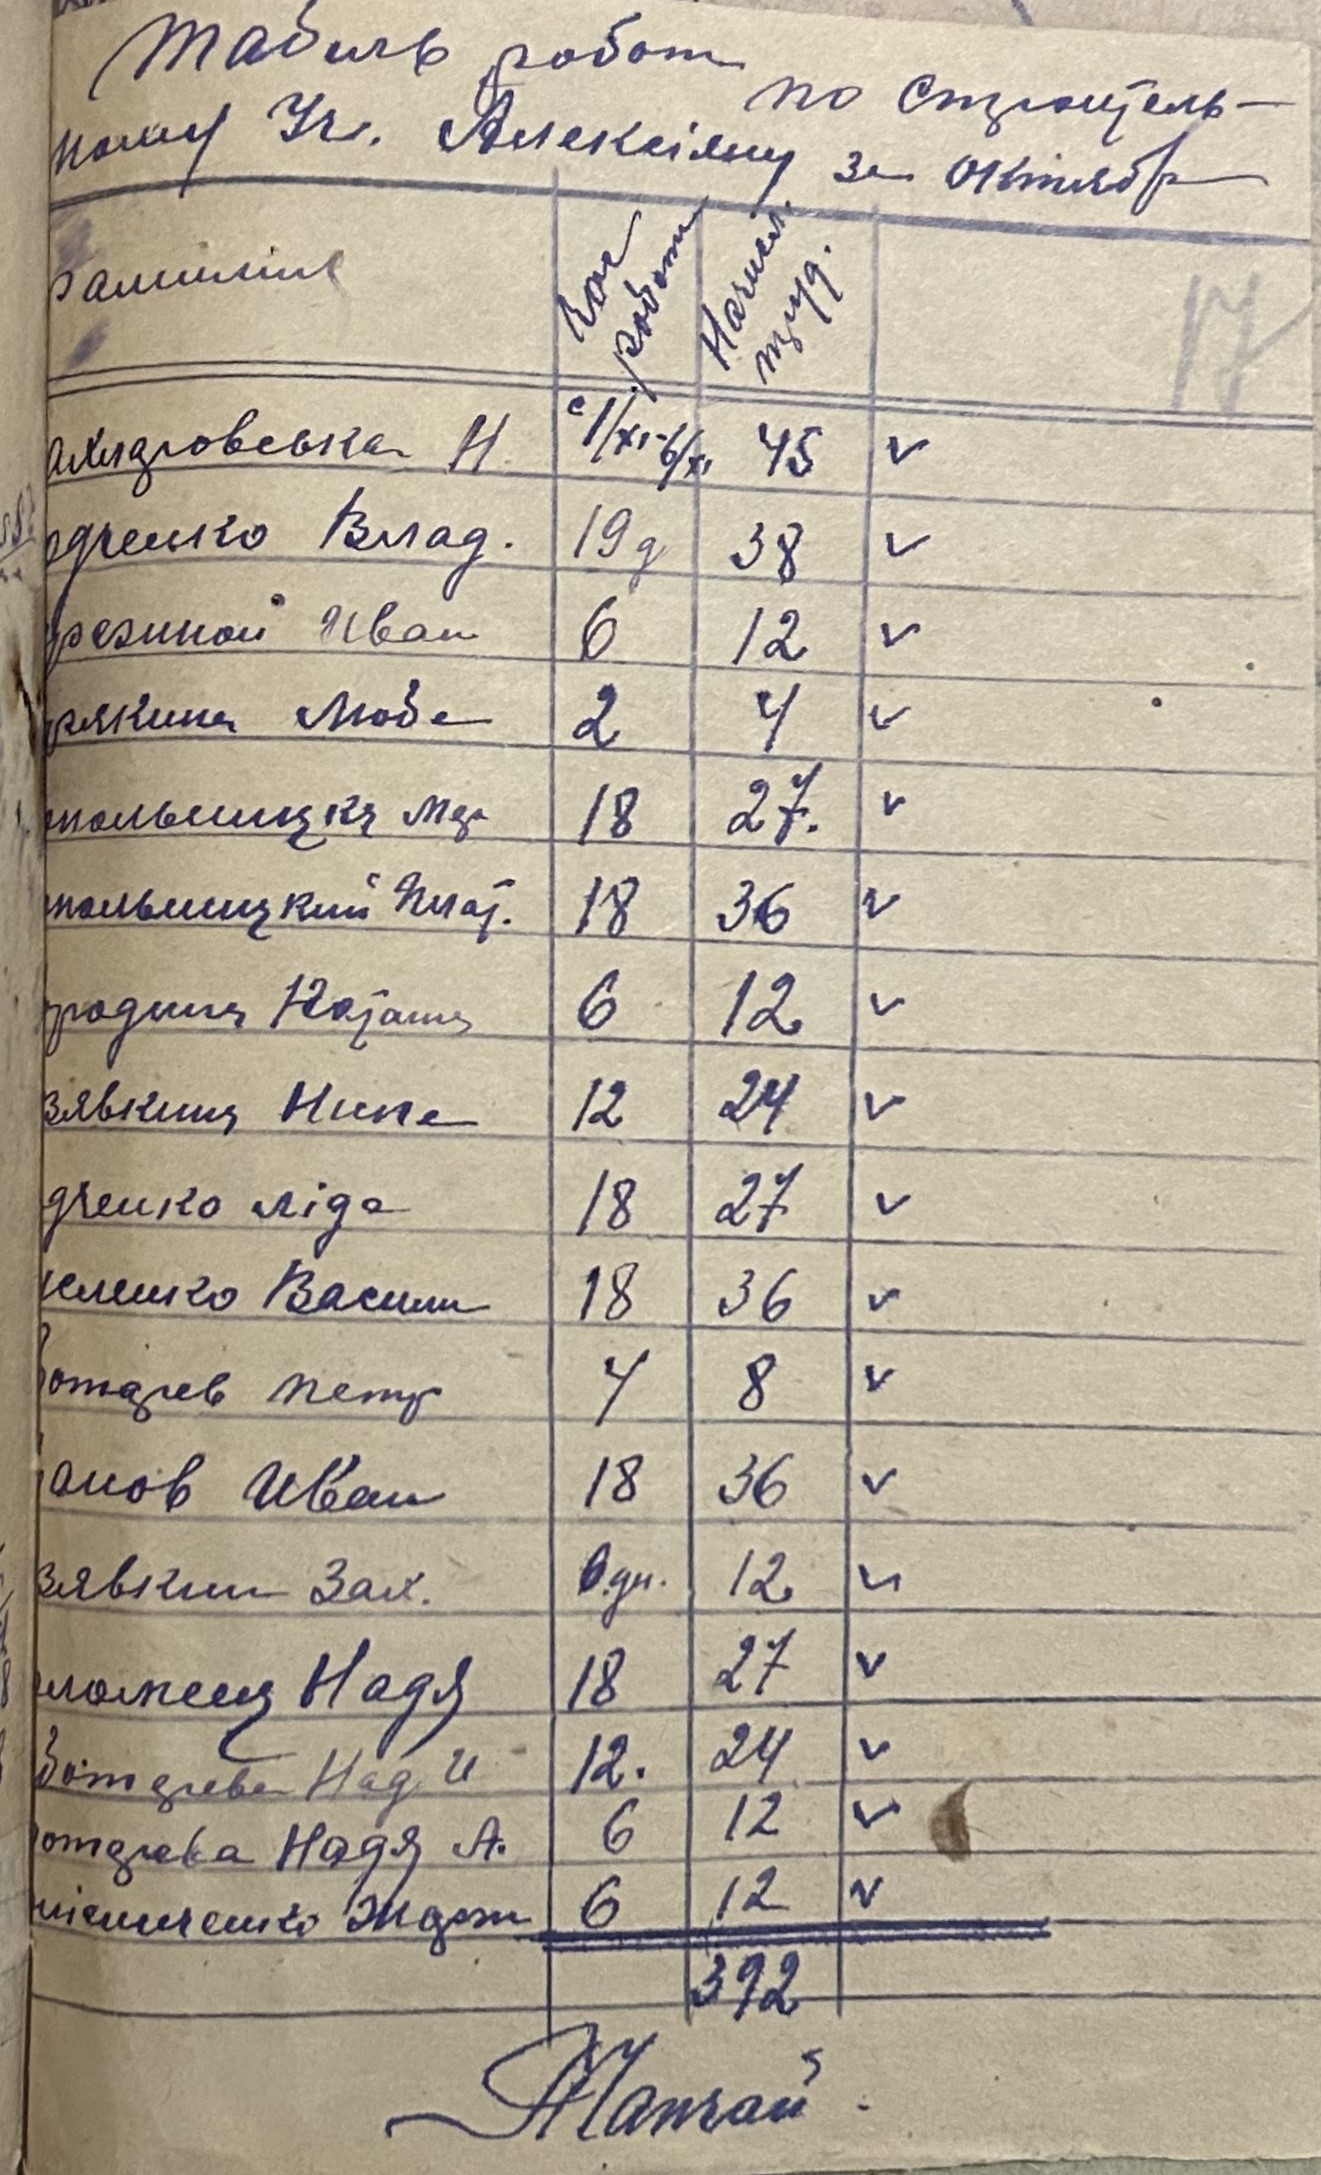 Табиль работ по строитель-
ному Уч. Алексіяну за октябр
фамилия Кол. работи Начисл. труд. 17
андровська Н. с 1/XI-6/XI 45 v
дченко Влад. 19 д 38 v
резиной Иван 6 12 v
рякина Люба 2 4 v
польницка Мар 18 27. v
польницкий Плат. 18 36 v
родина Наташа 6 12 v
зявкина Нина 12 24 v
дченко Ліда 18 27 v
еленко Васили 18 36 v
отарев Петр 4 8 v
анов Иван 18 36 v
зявкин Зах. 6 дн. 12 v
Надя 18 27 v
отарева Над И 12. 24 v
отарева Надя А. 6 12 v
6 12 v
392